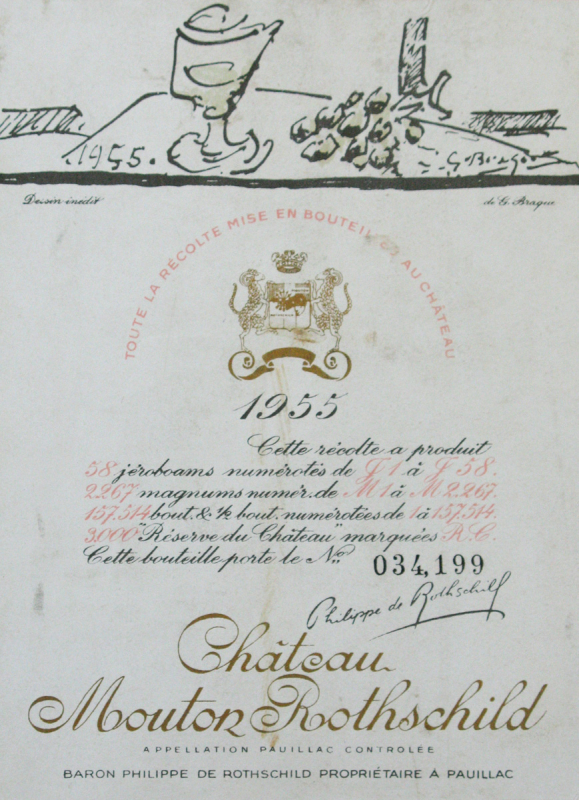 1955.
G. Braque
Dessin inédit
de G. Braque
TOUTE LA RÉCOLTE MISE EN BOUTEILLES AU CHÂTEAU
1955
Cette récolte a produit
58 jéroboams numérotés de J 1 à J 58.
2.267 magnums numér. de M 1 à M 2.267.
157.514 bout. & ½ bout. numérotées de 1 à 157.514.
3.000 "Réserve du Château" marquées R.C.
Cette bouteille porte le No. 034,199
Philippe de Rothschild
Château
Mouton Rothschild
APPELLATION PAUILLAC CONTROLÉE
BARON PHILIPPE DE ROTHSCHILD PROPRIÉTAIRE À PAUILLAC